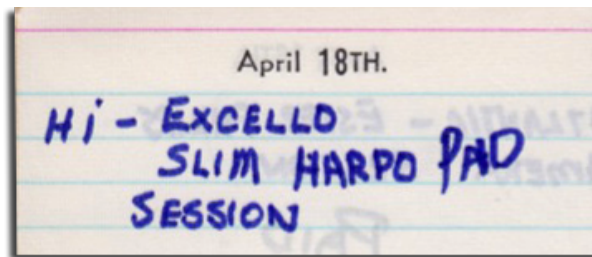 April 18TH.
Hi - EXCELLO
SLIM HARPO PAD
SESSION